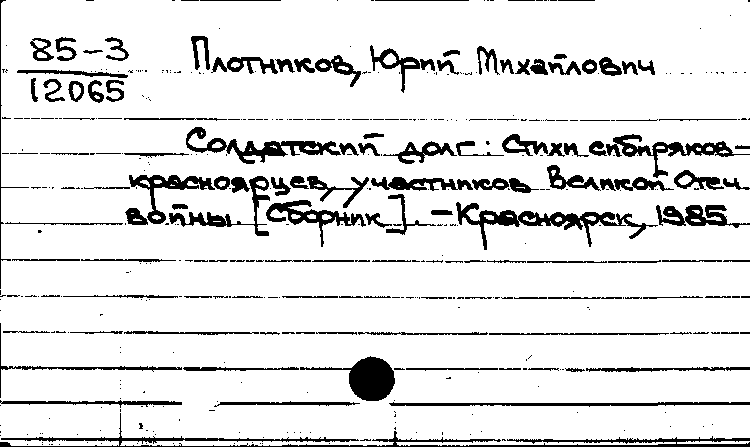 85-3
12065
Плотников, Юрий Михайлович
Солдатский долг: Стихи сибиряков-
красноярцев, участников Великой Отеч.
войны. [Сборник]. – Красноярск, 1985.